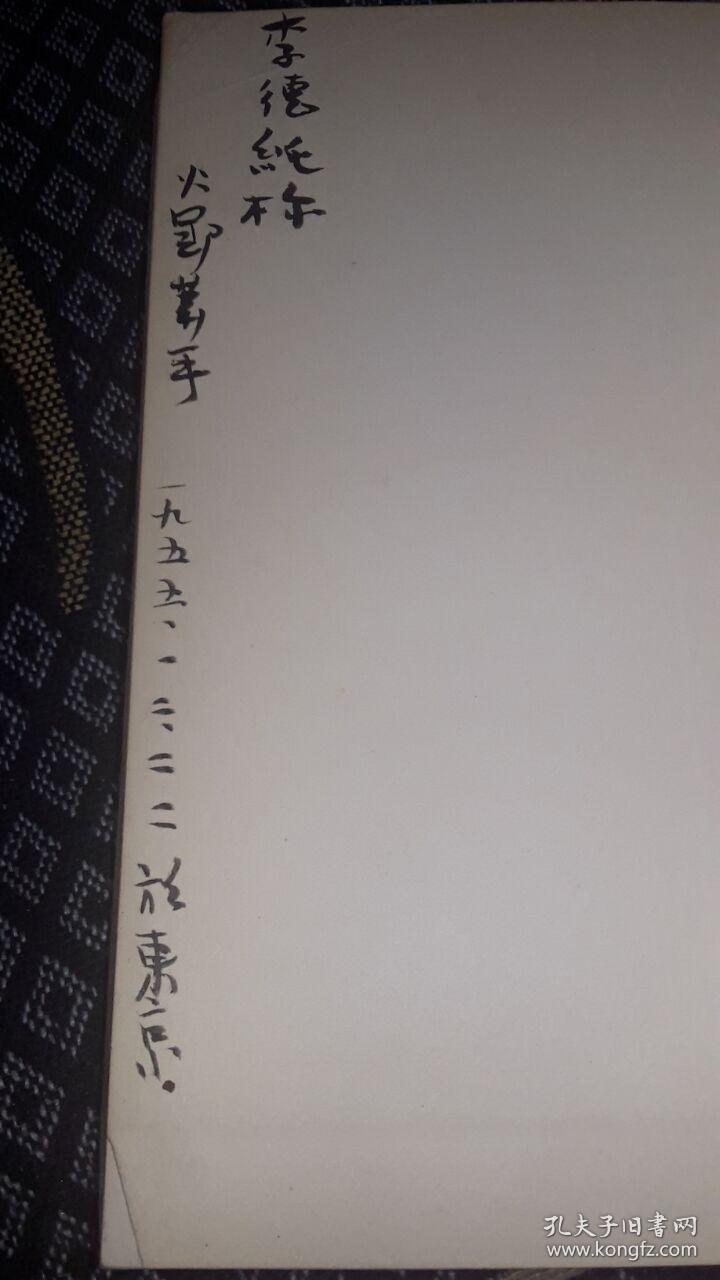 李德純様
火野葦平 一九五五、一二、二二 於東京.
孔夫子旧書网
www.kongfz.com